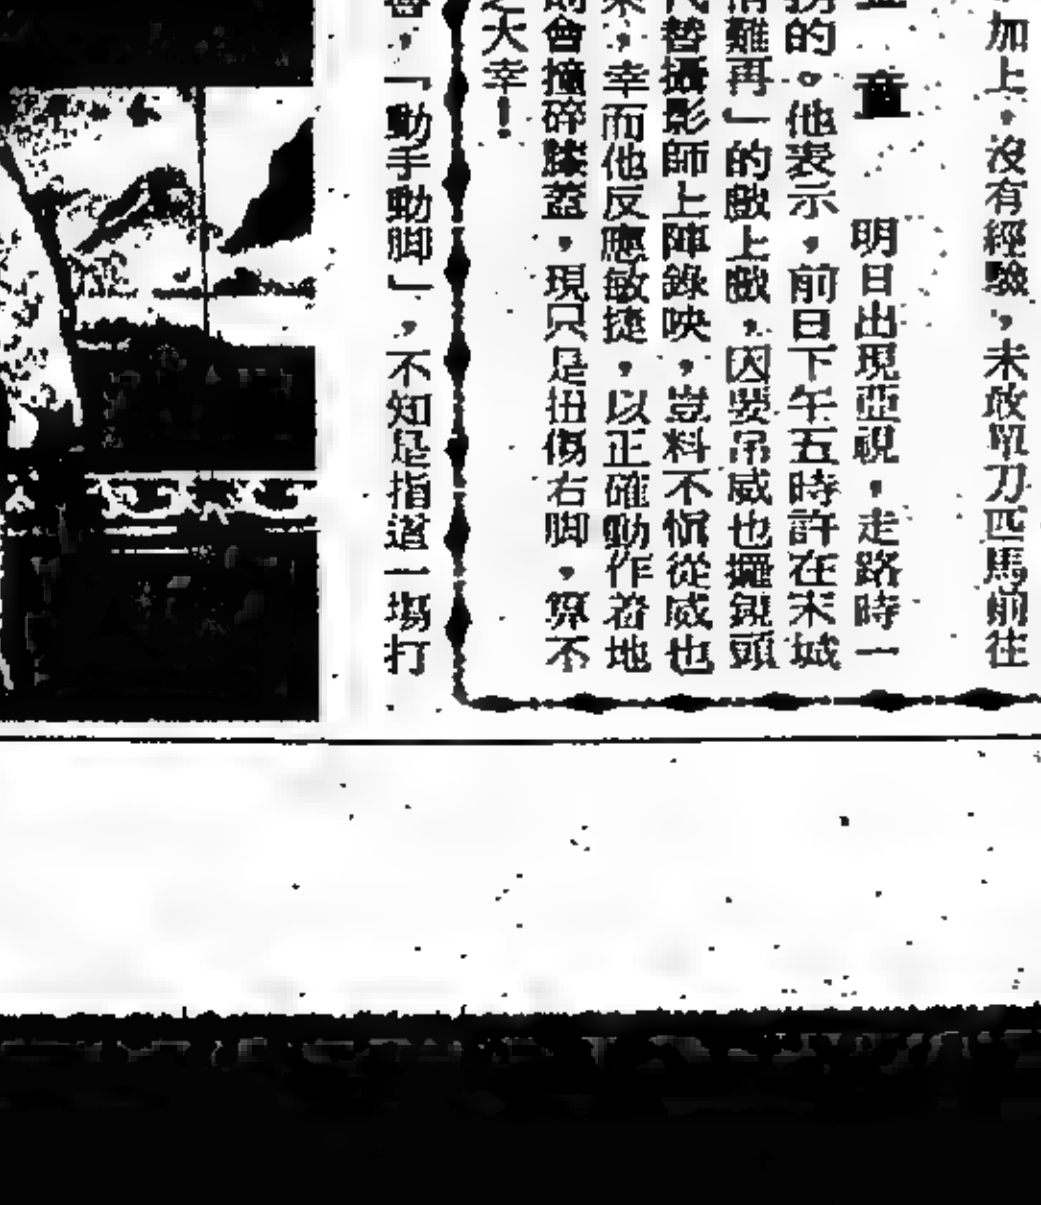 加上，沒有經驗，未敢單刀匹馬前往
童　明日出現亞視，走路時一
拐的。他表示，前日下午五時許在宋城
難再」的戲上戲，因要吊威也擺鏡頭
代替攝影師上陣錄映，豈料不慎從威也
，幸而他反應敏捷，以正確動作着地
會撞碎膝蓋，現只是扭傷右脚，算不
大幸！
，「動手動脚」，不知是指道一場打